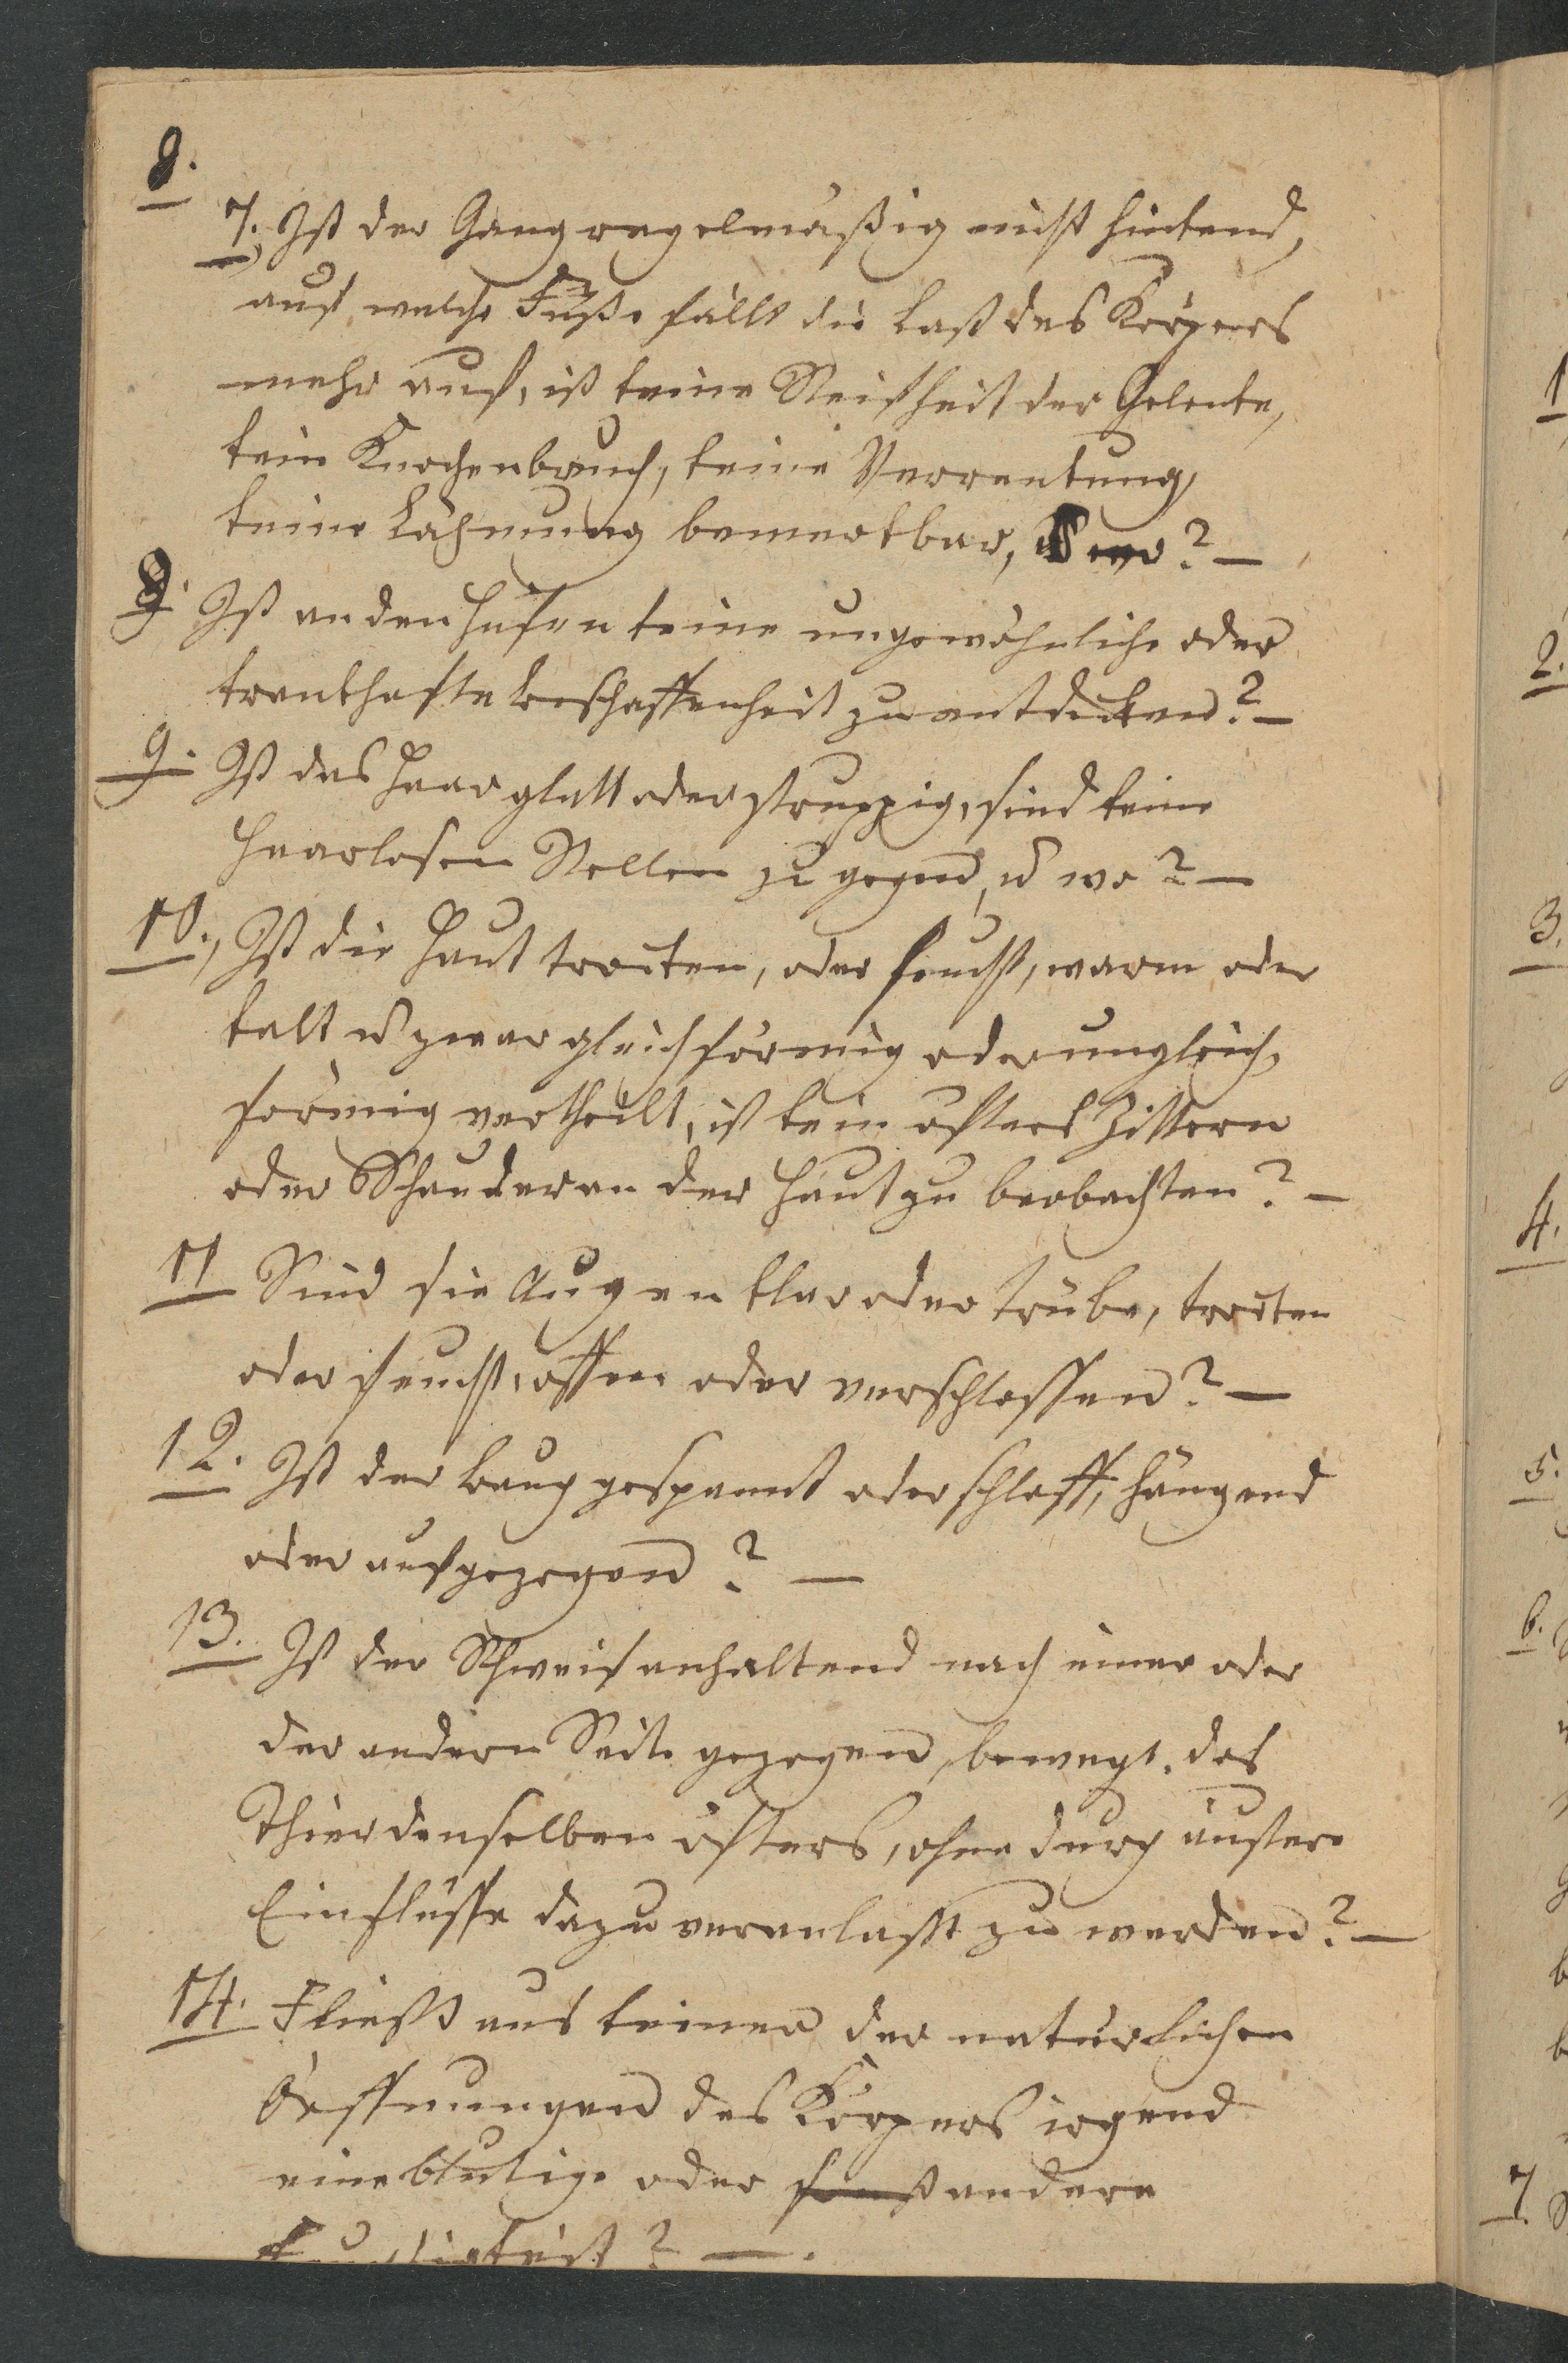 8.
7., Ist der Gang regelmäßig nicht hinkend,
auf welche Füße fällt die Last des Körpers
mehr auf, ist keine Steifheit der Gelenke,
kein Knochenbruch, keine Verrenkung,
keine Lähmung bemerkbar, u wo? —
8. Ist an den Hufen keine ungewöhnliche oder
krankhafte Beschaffenheit zu entdecken? —
9. Ist das Haar glatt oder struppig, sind keine
Haarlosen Stellen zu gegend, u wo? —
10., Ist die Haut trocken, oder feucht, warm oder
kalt u zwar gleichförmig oder ungleich-
förmig vertheilt, ist kein öfters Zittern
oder Schaudern an der Haut zu beobachten? —
11 Sind die Augen klar oder trübe, trocken
oder feucht, offen oder verschlossen? —
12. Ist der Bauch gespannt oder schlaff, hängend
oder aufgezogen? —
13. Ist der Schweif anhaltend nach einer oder
der andern Seite gezogen, bewegt das
Thier denselben öfters, ohne durch äußere
Einflüsse dazu veranlasst zu werden? —
14. Fließt aus keiner der natürlichen
Oeffnungen des Körpers irgend
eine blutige oder sonst andere
Feuchtigkeit? —.
1
2.
3.
4.
5.
6.
7